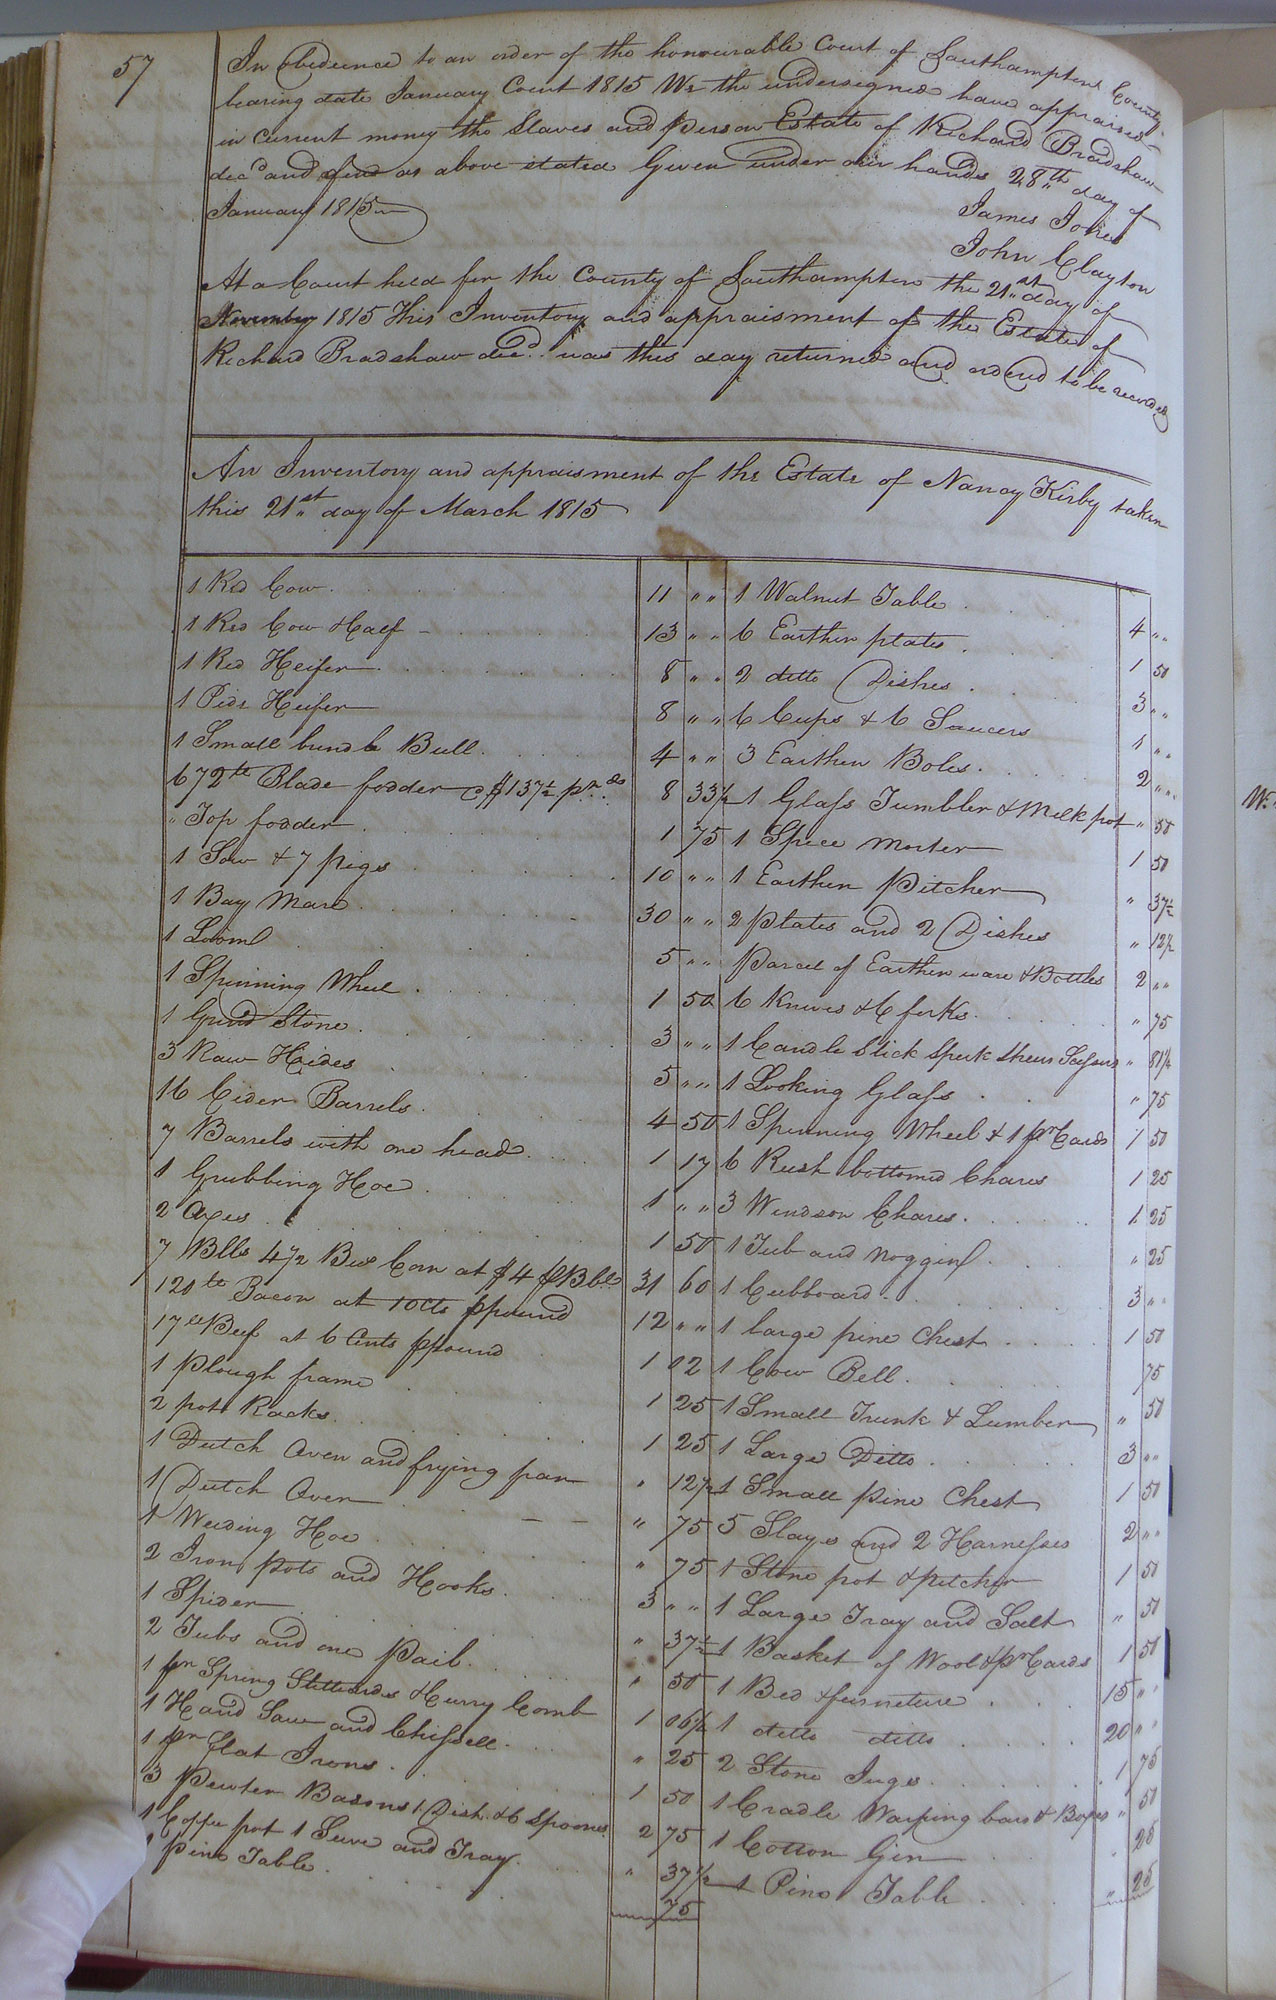 57
In obedience to an order of the honourable Court of Southampton County
bearing date January Court 1815 We the undersigned have appraised
in current money the Slaves and person Estate of Richard Bradshaw
decd and find as above stated Given under our hands 28th day of
January 1815
James Jones
John Clayton
At a Court held for the County of Southampton the 21st day of
November 1815 This Inventory and appraisment of the Estate of
Richard Bradshaw decd. was this day returned and ordered to be recorded
An Inventory and appraisment of the Estate of Nancy Kirby taken
this 21st day of March 1815
1 Red Cow 11 " "
1 Red Cow & Calf 13 " "
1 Red Heifer 8 " "
1 Pide Heifer 8 " "
1 Small brindle Bull 4 " "
672 lb Blade fodder @ $1 37½ pr do 8 33½
" Top fodder 1 75
1 Sow & 7 pigs 10 " "
1 Bay Mare 30 " "
1 Loom 5 " "
1 Spinning Wheel 1 50
1 Grind Stone 3 " "
3 Raw Hides 5 " "
16 Cider Barrels 4 50
7 Barrels with one head 1 17
1 Grubbing Hoe 1 " "
2 Axes 1 50
7 Blls 4½ Bus Corn at $4 p Bbl 31 60
120 lb Bacon at 10 Cts p pound 12 " "
17 lb Beef at 6 Cents p pound 1 02
1 Plough frame 1 25
2 pot Racks 1 25
1 Dutch Oven and frying pan " 12½
1 Dutch Oven " 75
1 Weeding Hoe " 75
2 Iron pots and Hooks 3 " "
1 Spider " 37½
2 Tubs and one Pail " 50
1 pr Spring Stilliards & Curry Comb 1 06½
1 Hand Saw and Chissell " 25
1 pr Flat Irons 1 50
3 Pewter Basons 1 Dish & 6 Spoones 2 75
1 Coffe pot 1 Sieve and Tray " 37½
1 Pine Table 75
1 Walnut Table 4 " "
6 Earthen plates 1 50
2 ditto Dishes 3 " "
6 Cups & 6 Saucers 1 " "
3 Earthen Boles 2 " "
1 Glass Tumbler & Milk pot " 50
1 Spice Morter 1 50
1 Earthen Pitcher " 37½
2 plates and 2 Dishes " 12½
Parcel of Earthen ware & Bottles 2 " "
6 Knives & 6 forks " 75
1 Candle Stick Sheers " 81¼
1 Looking Glass " 75
1 Spinning Wheel & 1 pr Cards 1 50
6 Rush bottomed Chares 1 25
3 Windson Chares 1 25
1 Tub and noggin " 25
1 Cubboard 3 " "
1 large pine Chest 1 50
1 Cow Bell 75
1 Small Trunk & Lumber " 50
1 Large Ditto 3 " "
1 Small pine Chest 1 50
5 Slays and 2 Harnesses 2 " "
1 Stone pot & pitcher 1 50
1 Large Tray and Salt " 50
1 Basket of Wool & pr Cards 1 50
1 Bed & furneture 15 " "
1 ditto ditto 20 " "
2 Stone Jugs 1 75
1 Cradle Warping bars & Boxes " 50
1 Cotton Gin 25
1 Pine Table " 25